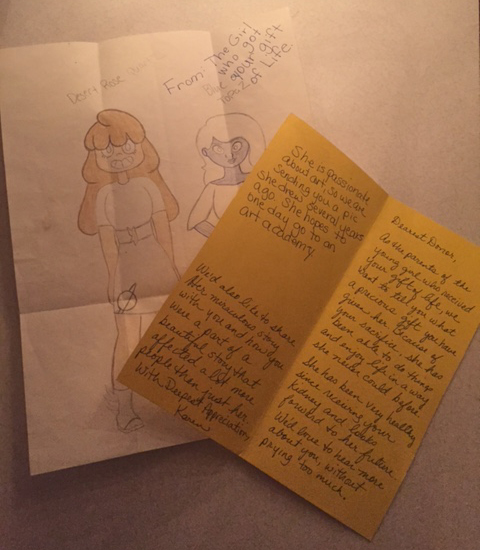 From The Girl
who got
your gift
of Life
She is passionate
about art, so we are
sending you a pic
she drew several years
ago. She hopes to
one day go to an
art academy
We'd also like to share
her miraculous story
with you and how you
were a part of a
beautiful story that
effected a lot more
people then just her.
With Deepest Appreciation,
Karen
Dearest Donor,
As the parents of the
young girl who received
your gift of life, we
want to tell you what
a precious gift you have
given her. Because of
your sacrifice, she has
been able to do things
and enjoy life in a way
she never could before.
She has been very healthy
since receiving your
kidney and looks
forward to her future.
We'd love to hear more
about you, without
prying too much.